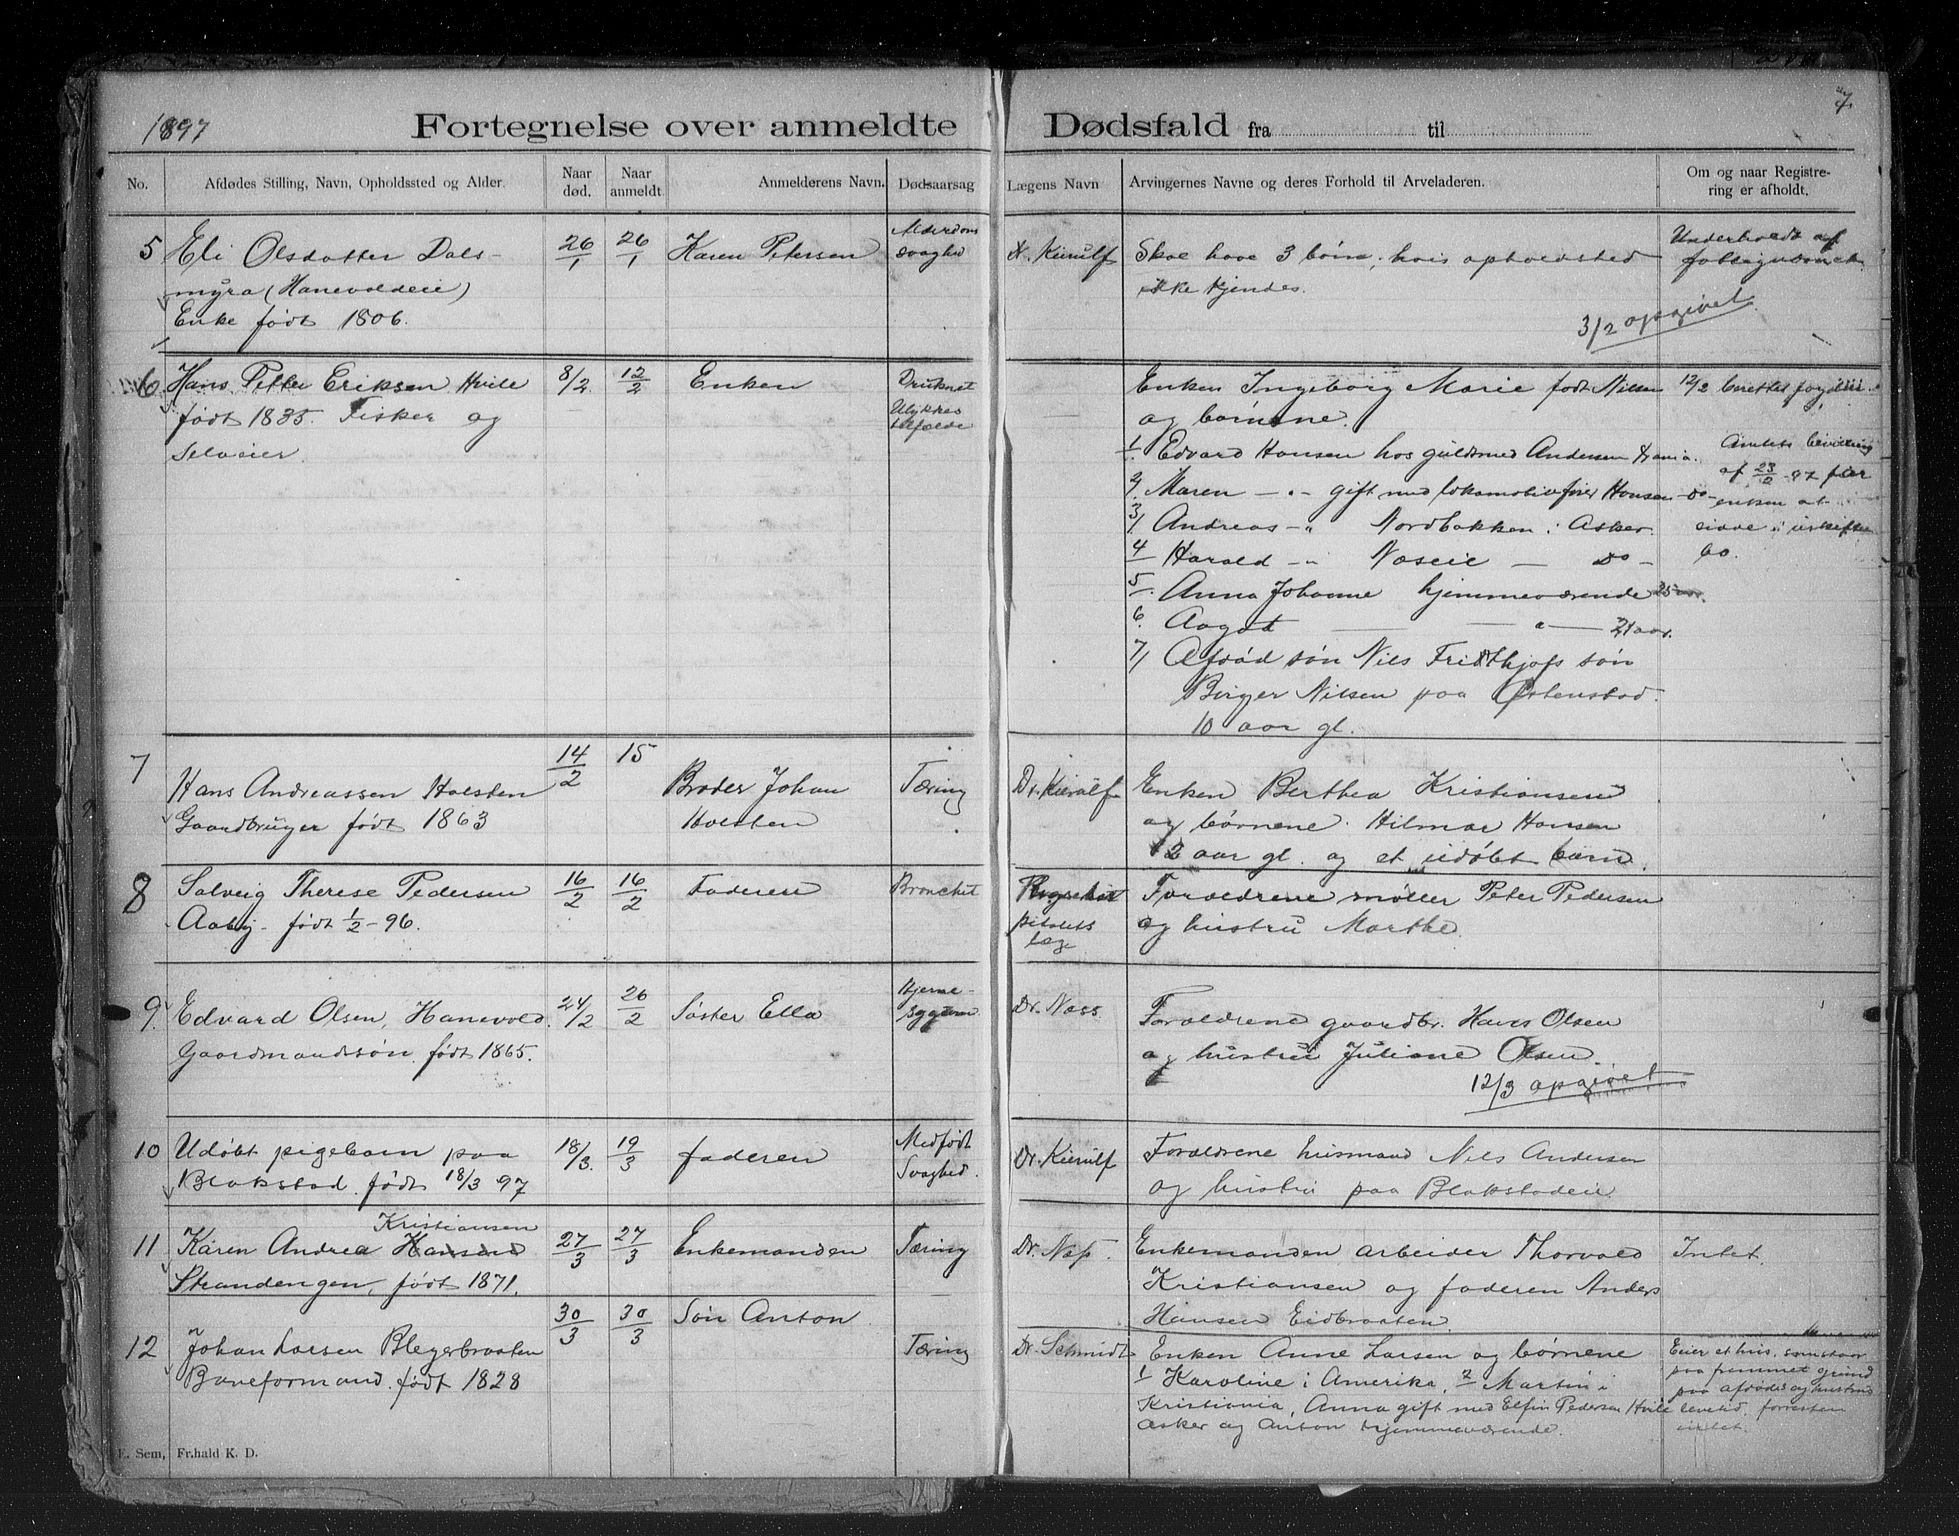 1897
Fortegnelse over anmeldte Dødsfald fra til
7.
No.
Afdødes Stilling, Navn, Opholdssted og Alder.
Naar død.
Naar anmeldt.
Anmelderens Navn.
Dødsaarsag
Lægens Navn
Arvingernes Navne og deres Forhold til Arveladeren.
Om og naar Registre-
ring er afholdt.
5 Eli Olsdatter Dals-
myra (Hanevoldeie)
Enke født 1806.
26/1
26/1
Karen Petersen
Alderdoms
svaghed
Dr. Kierulf
Skal have 3 børn, hvis opholdsted
ikke kjendes.
3/2 opgivet
Underholdt af
fattigvæsenet
6 Hans Petter Eriksen Hvile
født 1835. Fisker og
Selveier.
8/2
12/2
Enken
Druknet
Ulykkes
tilfælde
Enken Ingeborg Marie født Nilsen
og børnene.
1. Edvard Hansen hos guldsmed Andersen Kr.ania.
2. Maren —"— gift med lokomotivfører Hansen —Do—
3, Andreas —" Nordbakken i Asker.
4 Harald —" Næseie — Do —
5. Anna Johanne hjemmeværende 25 aar.
6. Aagot — " — 21 aar.
7, Afdød søn Nils Fridthjofs søn
Birger Nilsen paa Østenstad.
10 aar gl.
12/2 berettet
Amtets bevilling
af 23/2 - 97 for
enken at
sidde i uskiftet
bo.
7
Hans Andreassen Holsten
Gaardbruger født 1863
14/2
15
Broder Johan
Holsten
Tæring
Dr. Kierulf
Enken Berthea Kristiansen
og børnene. Hilmar Hansen
12 aar gl. og et udøbt barn.
8 Solveig Therese Pedersen
Aaby. født 1/2 - 96.
16/2
16/2
Faderen
Bronchit
Rigshos
pitalets
læge
Forældrene møller Peter Pedersen
og hustru Marthe.
9. Edvard Olsen, Hanevold.
Gaardmandssøn. født 1865.
24/2
26/2
Søster Ella
Hjerne-
sygdom.
Dr. Næss.
Forældrene gaardbr. Hans Olsen
og hustru Juliane Olsen.
12/3 opgivet
10 Udøbt pigebarn paa
Blakstad. født 18/3 97
18/3.
19/3
faderen
Medfødt
Svaghed.
Dr. Kierulf
Forældrene husmand Nils Andersen
og hustru paa Blakstadeie.
11 Karen Andrea Hansen Kristiansen
Strandengen, født 1871.
27/3
27/3
Enkemanden
Tæring
Dr. Næss.
Enkemanden arbeider Thorvald
Kristiansen og faderen Anders
Hansen Eidbraaten.
Intet.
12 Johan Larsen Blegerbraaten
Baneformand. født 1828
30/3
30/3
Søn Anton
Tæring
Dr. Schmidt
Enken Anne Larsen og børnene
1 Karoline i Amerika, 2 Martin i
Kristiania, Anna gift med Elfin Pedersen Hvile
Asker og Anton hjemmeværende.
Eier et hus, som staar
paa fremmet grund
paa afdødes og hustrus
levetid. forresten
intet.
E. Sem, Fr.hald K. D.